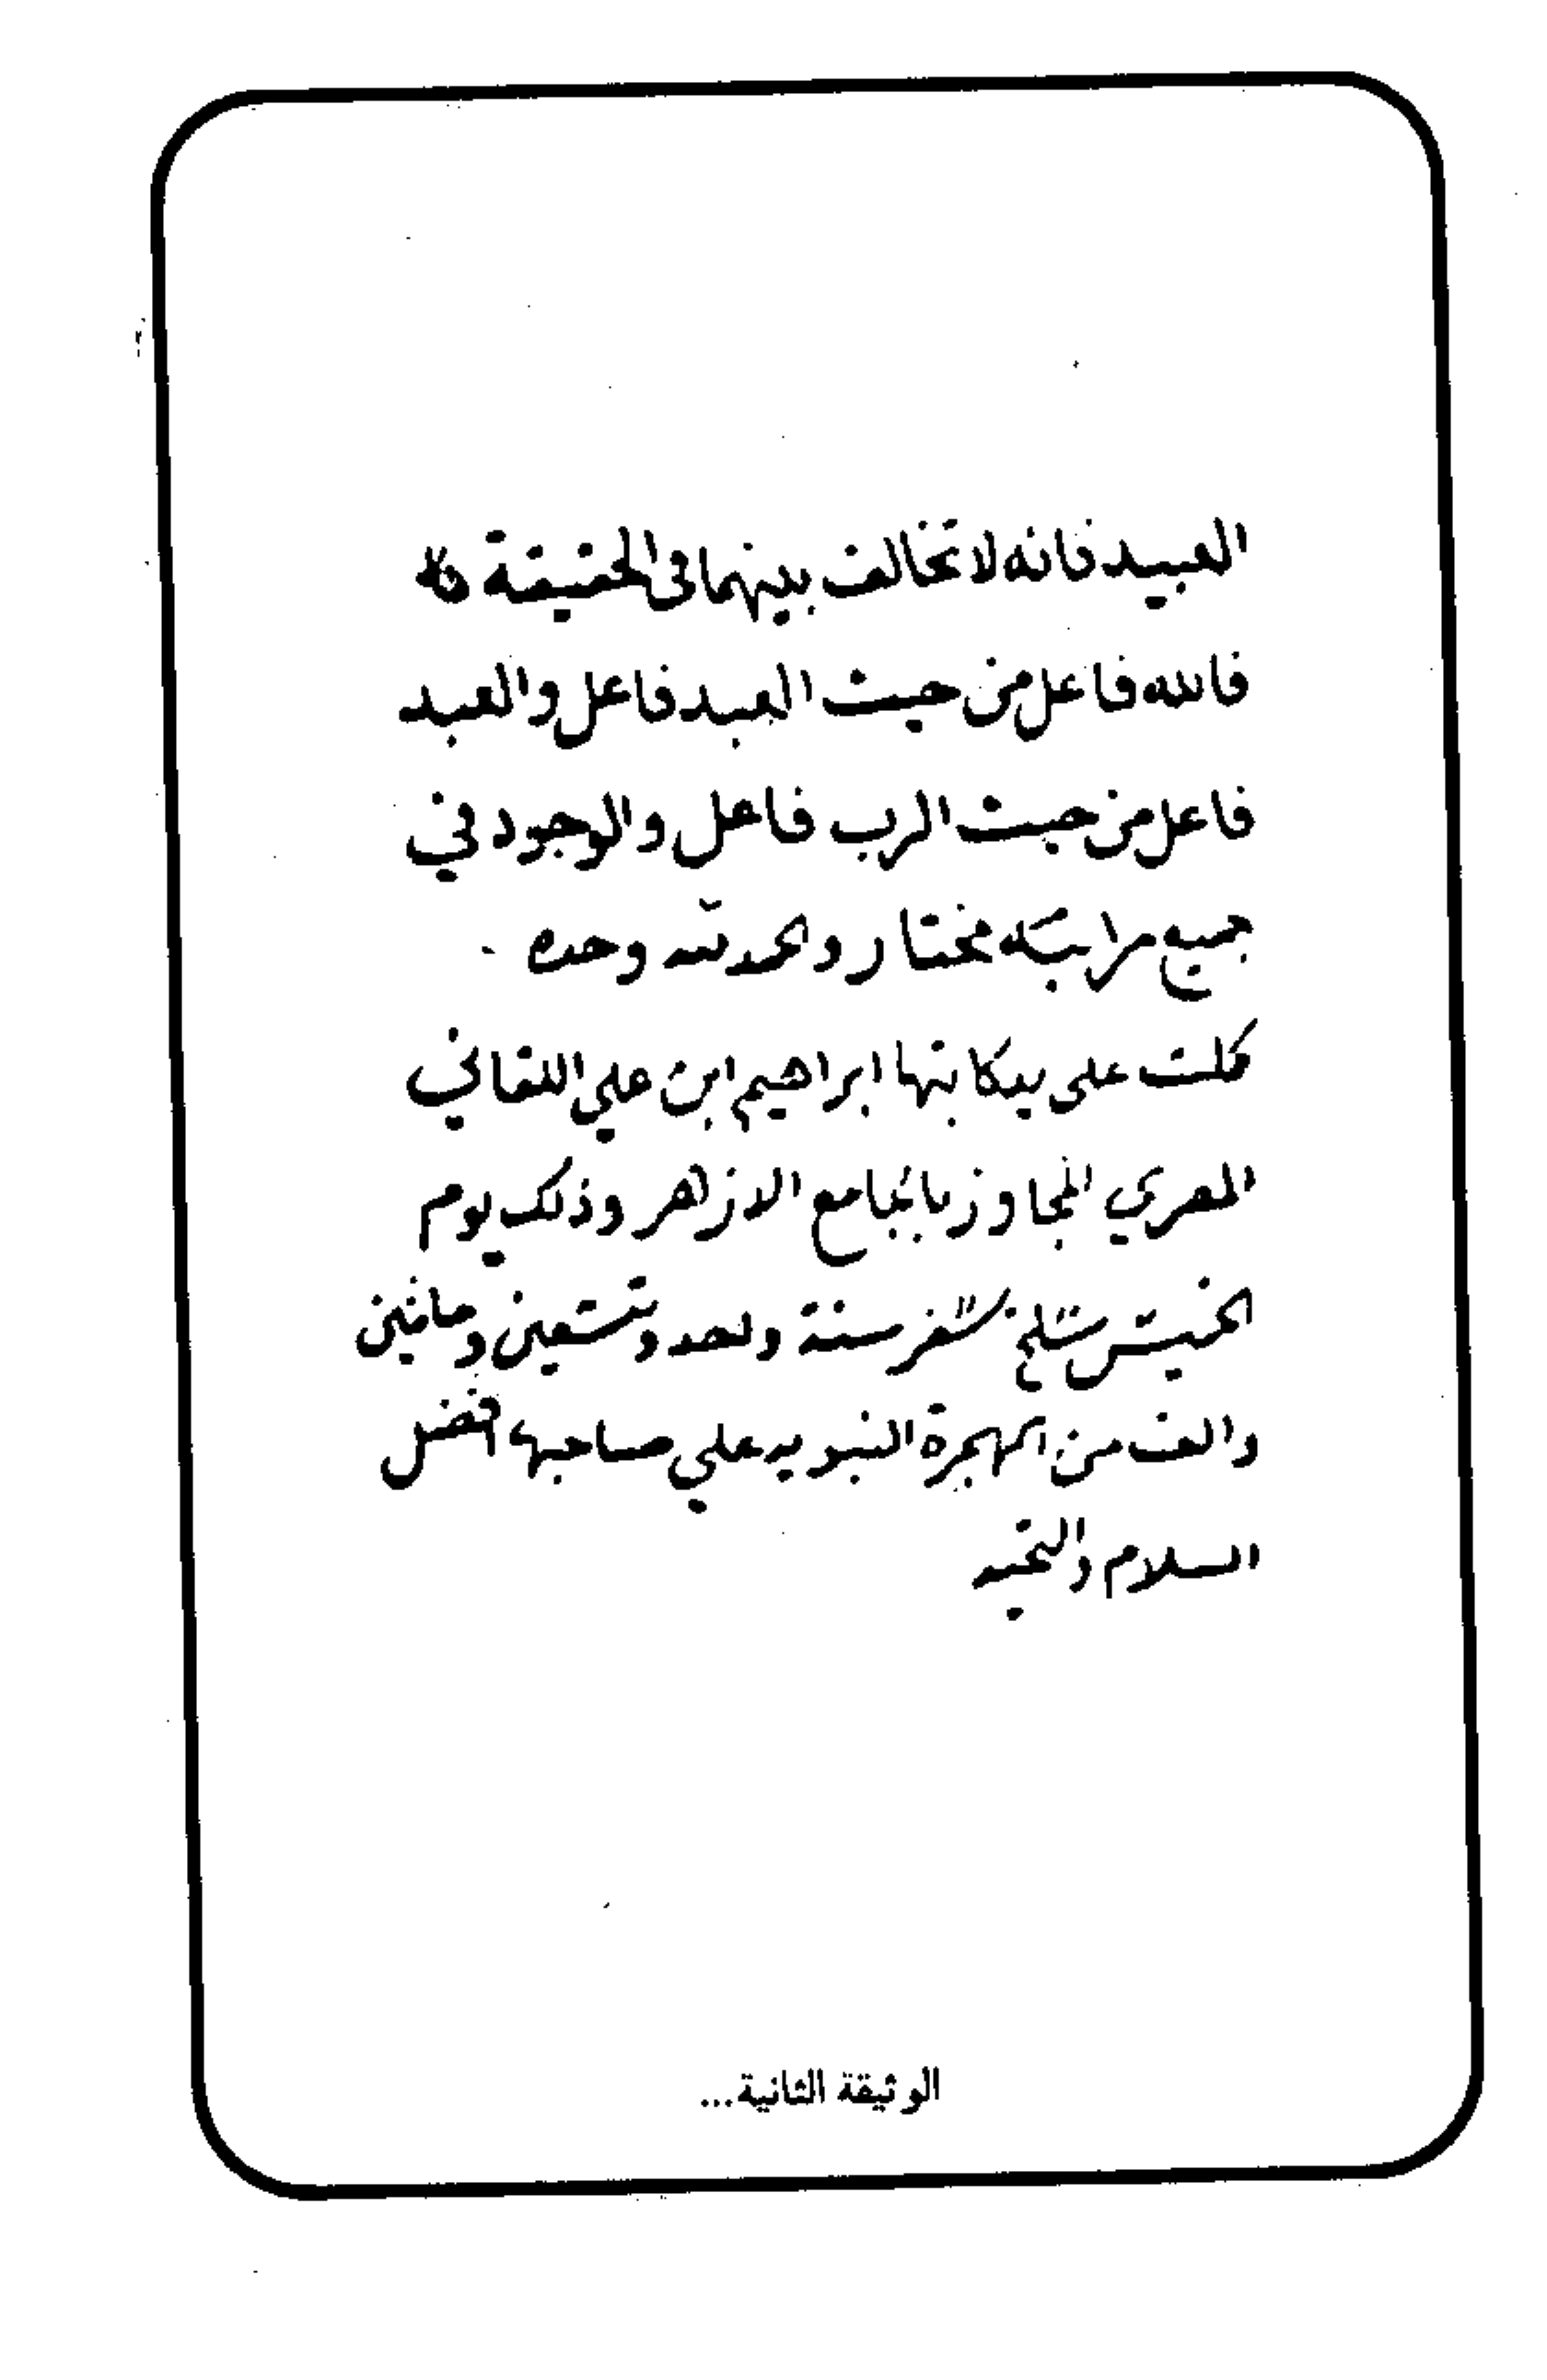 العبيد فانه لا تخالف بينهما في الحقيقة
فالله فاعل من حيث العبد فاعل والعبد
فاعل من حيث الرب فاعل والوجود في
جميع مراتبه مختار والحمد لله وحده
كملت على يد كاتبها ابراهيم ابن علي اللقاني
المصري المجاور بالجامع الازهر وذلك يوم
الخميس سلخ سنة واحد وتسعين ومائتين
والف من الهجرة النبويه علي صاحبها افضل
السلام والتحيه
الوثيقة الثانية...